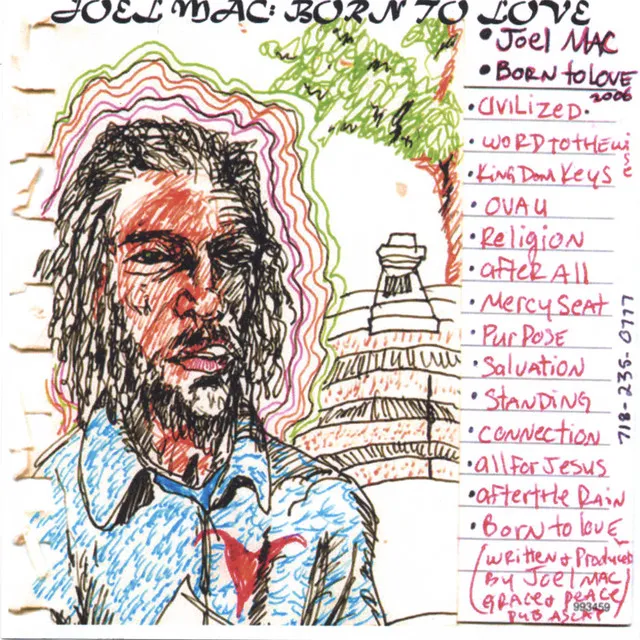 JOEL MAC: BORN TO LOVE
• Joel MAC
• BORN to LOVE
2006
• CiViLiZED.
• WORD TO THE Wise
• King Dom Keys
• OVAU
• Religion
• after All
• Mercy Seat
• PurPose
• Salvation
• STANDiNg
• CONNECTION
• all For Jesus
• after the Rain
• Born to love
(written & Produced
By Joel MAC
grace & peace)
PUB ASCAP
993459
718-235-0777